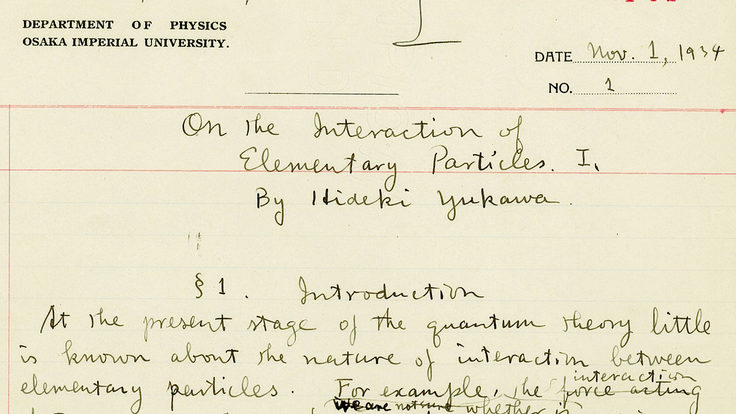 DEPARTMENT OF PHYSICS
OSAKA IMPERIAL UNIVERSITY.
DATE Nov. 1, 1934
NO. 1
On the Interaction of
Elementary Particles. I.
By Hideki Yukawa.
§ 1. Introduction
At the present stage of the quantum theory little
is known about the nature of interaction between
interaction
elementary particles. For example, the force acting
we are not sure whether